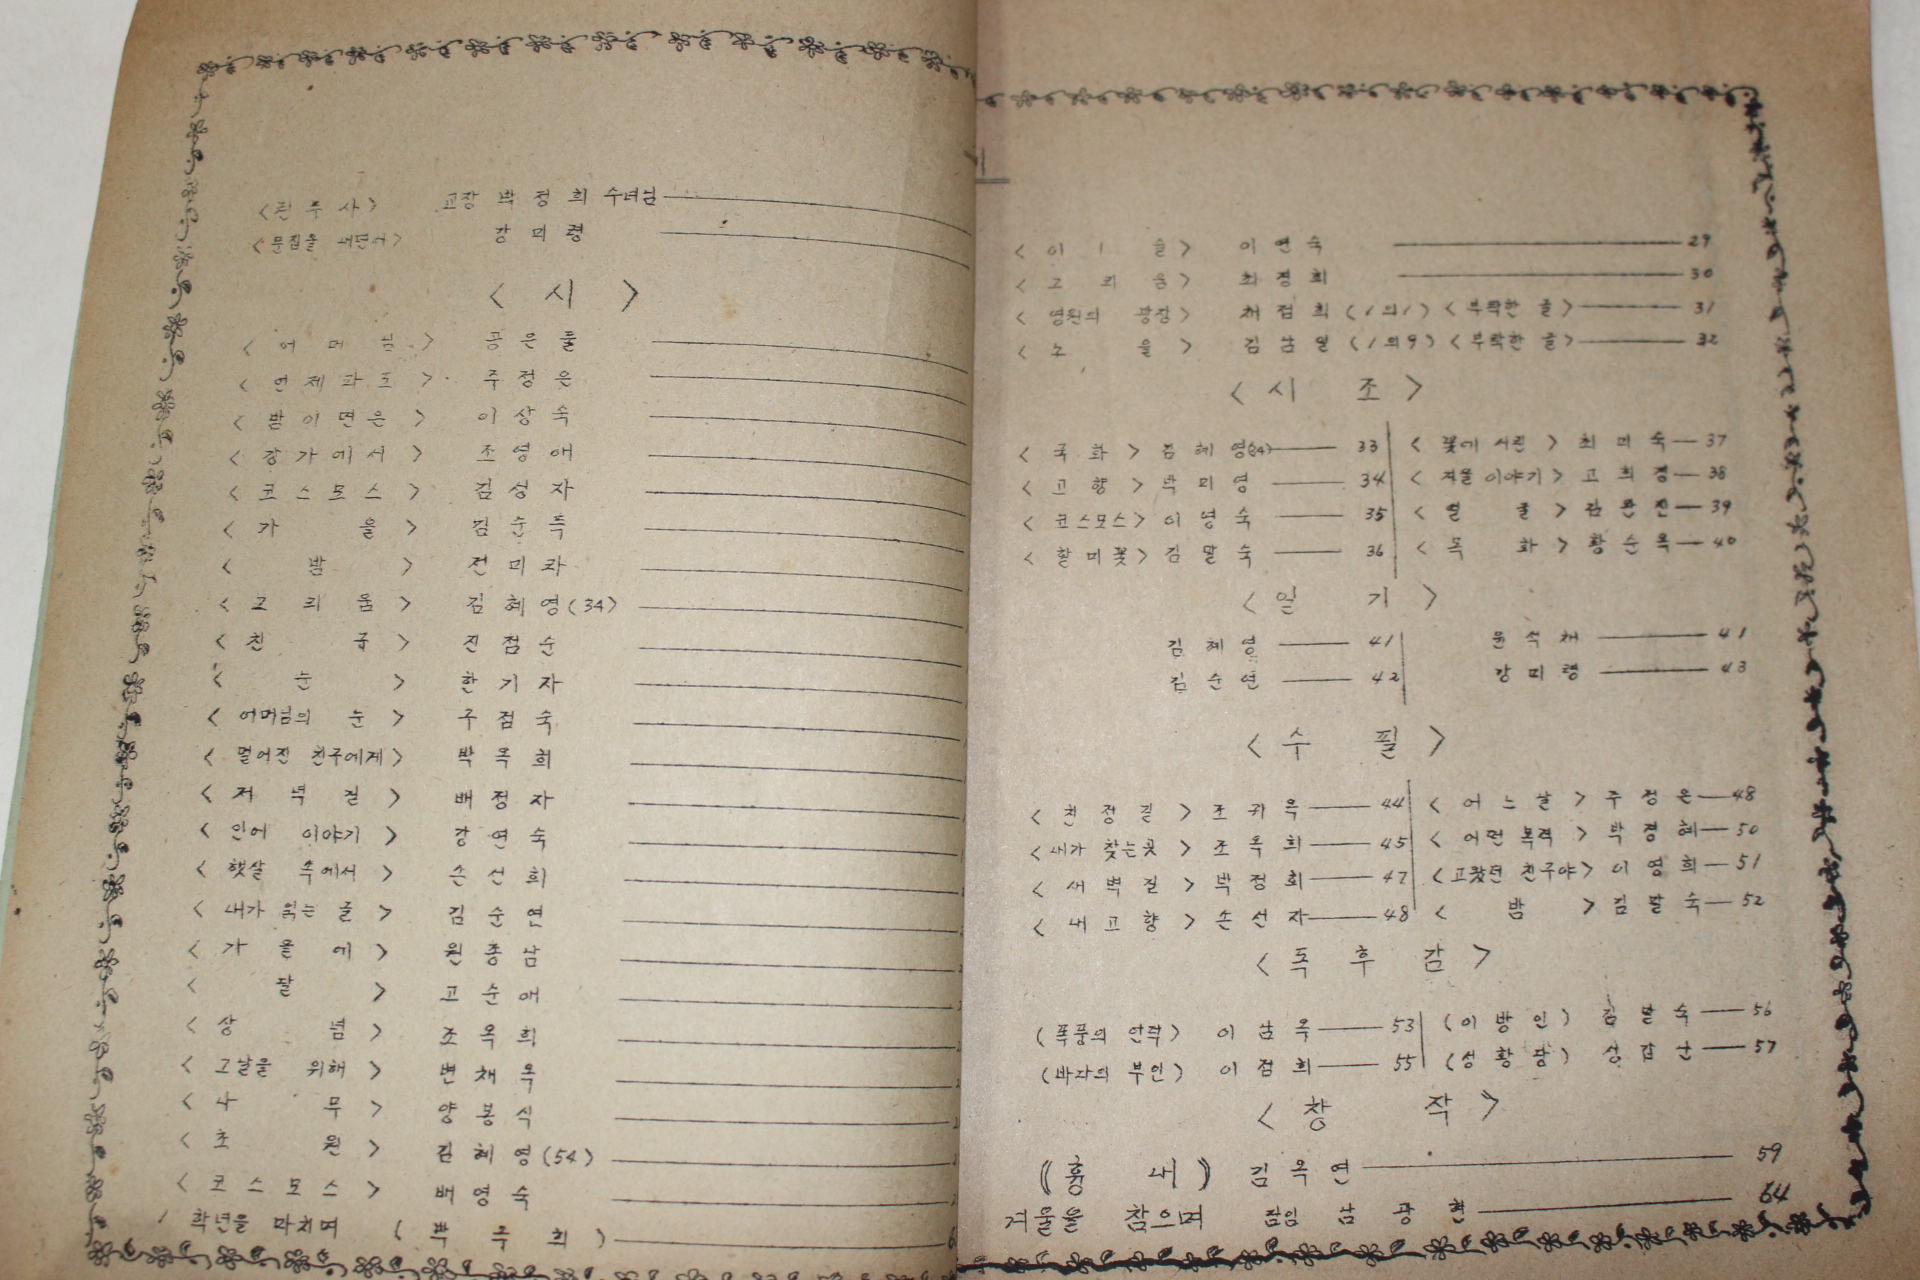 <권두사> 교장 박정희 수녀님
<문집을 내면서> 강미령
< 시 >
<어머님> 공은돌
<언제라도> 주정은
<밤이면은> 이상숙
<강가에서> 조영애
<코스모스> 김성자
<가을> 김순득
<밤> 전미라
<그리움> 김혜영(34)
<친구> 진점순
<눈> 한기자
<어머님의 눈> 구점숙
<멀어진 친구에게> 박옥희
<저녁길> 배정자
<인어 이야기> 강연숙
<햇살 속에서> 손선희
<내가 읽는 글> 김순연
<가을에> 원종남
<달> 고순애
<상념> 조옥희
<그날을 위해> 변채옥
<나무> 양봉식
<초원> 김혜영(54)
<코스모스> 배영숙
학년을 마치며 (박주희) 6
<이슬> 이연숙 29
<그리움> 최경희 30
<영원의 광장> 채점희 (1의1) <부탁한 글> 31
<노을> 김남일 (1의9) <부탁한 글> 32
< 시조 >
<국화> 김혜영(34) 33 <꽃에 서린> 최미숙 37
<고향> 박미영 34 <겨울 이야기> 고희경 38
<코스모스> 이영숙 35 <얼굴> 39
<할미꽃> 김말숙 36 <목화> 황순옥 40
< 일기 >
김혜영 41 윤석채 41
김순연 42 강미령 43
< 수필 >
<친정길> 조귀옥 44 <어느날> 주정은 48
<내가 찾는 꽃> 조옥희 45 <어떤 목격> 박경혜 50
<새벽길> 박정희 47 <고왔던 친구야> 이영희 51
<내고향> 손선자 48 <밤> 김말숙 52
< 독후감 >
(폭풍의 언덕) 이남옥 53 (이방인) 김말숙 56
(바다의 부인) 이점희 55 (성황당) 57
< 창작 >
(흉내) 김옥연 59
겨울을 참으며 담임 남광현 64